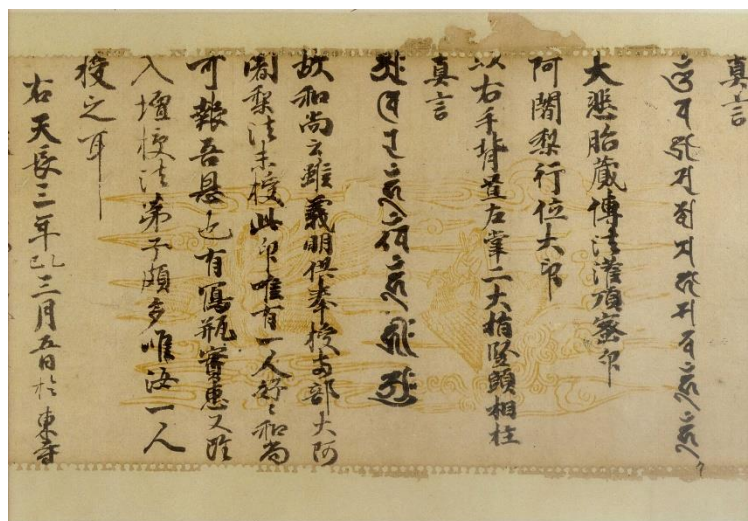 真言
大悲胎蔵傳法灌頂密印
阿闍梨行位大印
以右手背置左掌二大指竪頭相柱
真言
故和尚云雖義明供奉授両部大阿
闍梨法未授此印唯有一人好〻和尚
可報吾恩也有寫瓶實恵又雖
入壇授法弟子頗多唯汝一人
授之耳
右天長三年乙巳三月五日於東寺